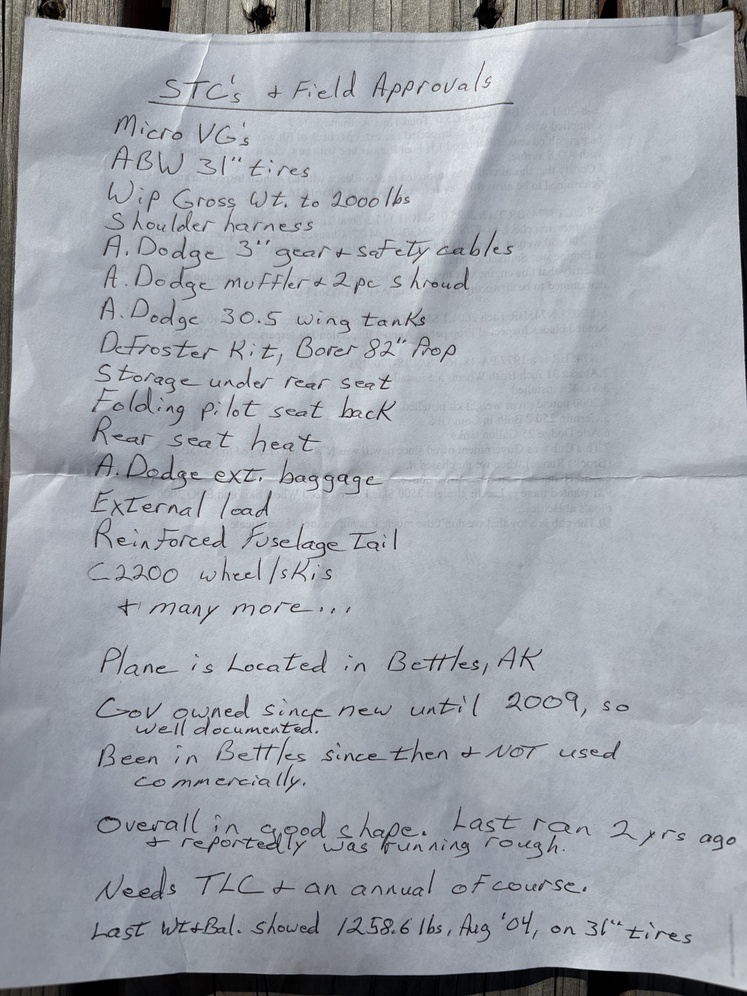 STC's + Field Approvals
Micro VG's
ABW 31" tires
Wip Gross Wt. to 2000 lbs
Shoulder harness
A. Dodge 3" gear + safety cables
A. Dodge muffler + 2 pc shroud
A. Dodge 30.5 wing tanks
Defroster Kit, Borer 82" Prop
Storage under rear seat
Folding pilot seat back
Rear seat heat
A. Dodge ext. baggage
External load
Reinforced Fuselage Tail
C2200 wheel/skis
+ many more...
Plane is Located in Bettles, AK
Gov owned since new until 2009, so
well documented.
Been in Bettles since then + NOT used
commercially.
Overall in good shape. Last ran 2 yrs ago
+ reportedly was running rough.
Needs TLC + an annual of course.
Last Wt+Bal. showed 1258.6 lbs, Aug '04, on 31" tires